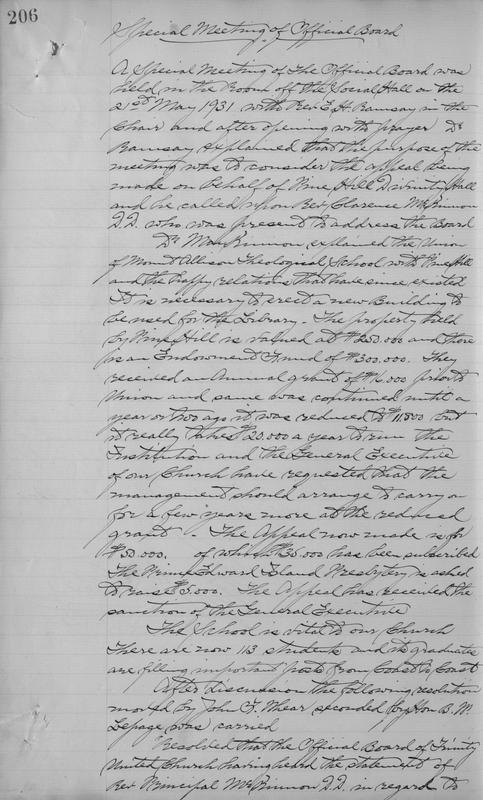 206
Special Meeting of Official Board
A Special Meeting of The Official Board was
held in the Room off the Social Hall on the
21st May 1931 with Rev. E. H. Ramsay in the
Chair and after opening with prayer Dr
Ramsay explained that the purpose of the
meeting was to consider the appeal being
made on behalf of Pine Hill Divinity Hall
and he called upon Rev Clarence McKinnon
D.D. who was present to address the Board
Dr MacKinnon explained the Union
of Mount Allison Theological School with Pine Hill
and the happy relations that have since existed
It is necessary to erect a new Building to
be used for the Library. The property held
by Pine Hill is valued at $250.000 and there
is an Endowment Fund of $300.000. They
received an Annual grant of $16.000 prior to
Union and same was continued until a
year or two ago it was reduced to $11800 but
it really takes $20.000 a year to run the
Institution and the General Executive
of our Church have requested that the
management should arrange to carry on
for a few years more at the reduced
grant. The Appeal now made is for
$50.000. of which $30.000 has been subscribed
The Prince Edward Island Presbytery is asked
to raise $5.000. The Appeal has received the
sanction of the General Executive
The School is vital to our Church
There are now 113 students and its graduates
are filling important posts from Coast to Coast
After discussion the following resolution
moved by John F. Whear seconded by Hon B. W.
Lepage was carried
Resolved that the Official Board of Trinity
United Church having heard the statement of
Rev Principal McKinnon D.D. in regard to